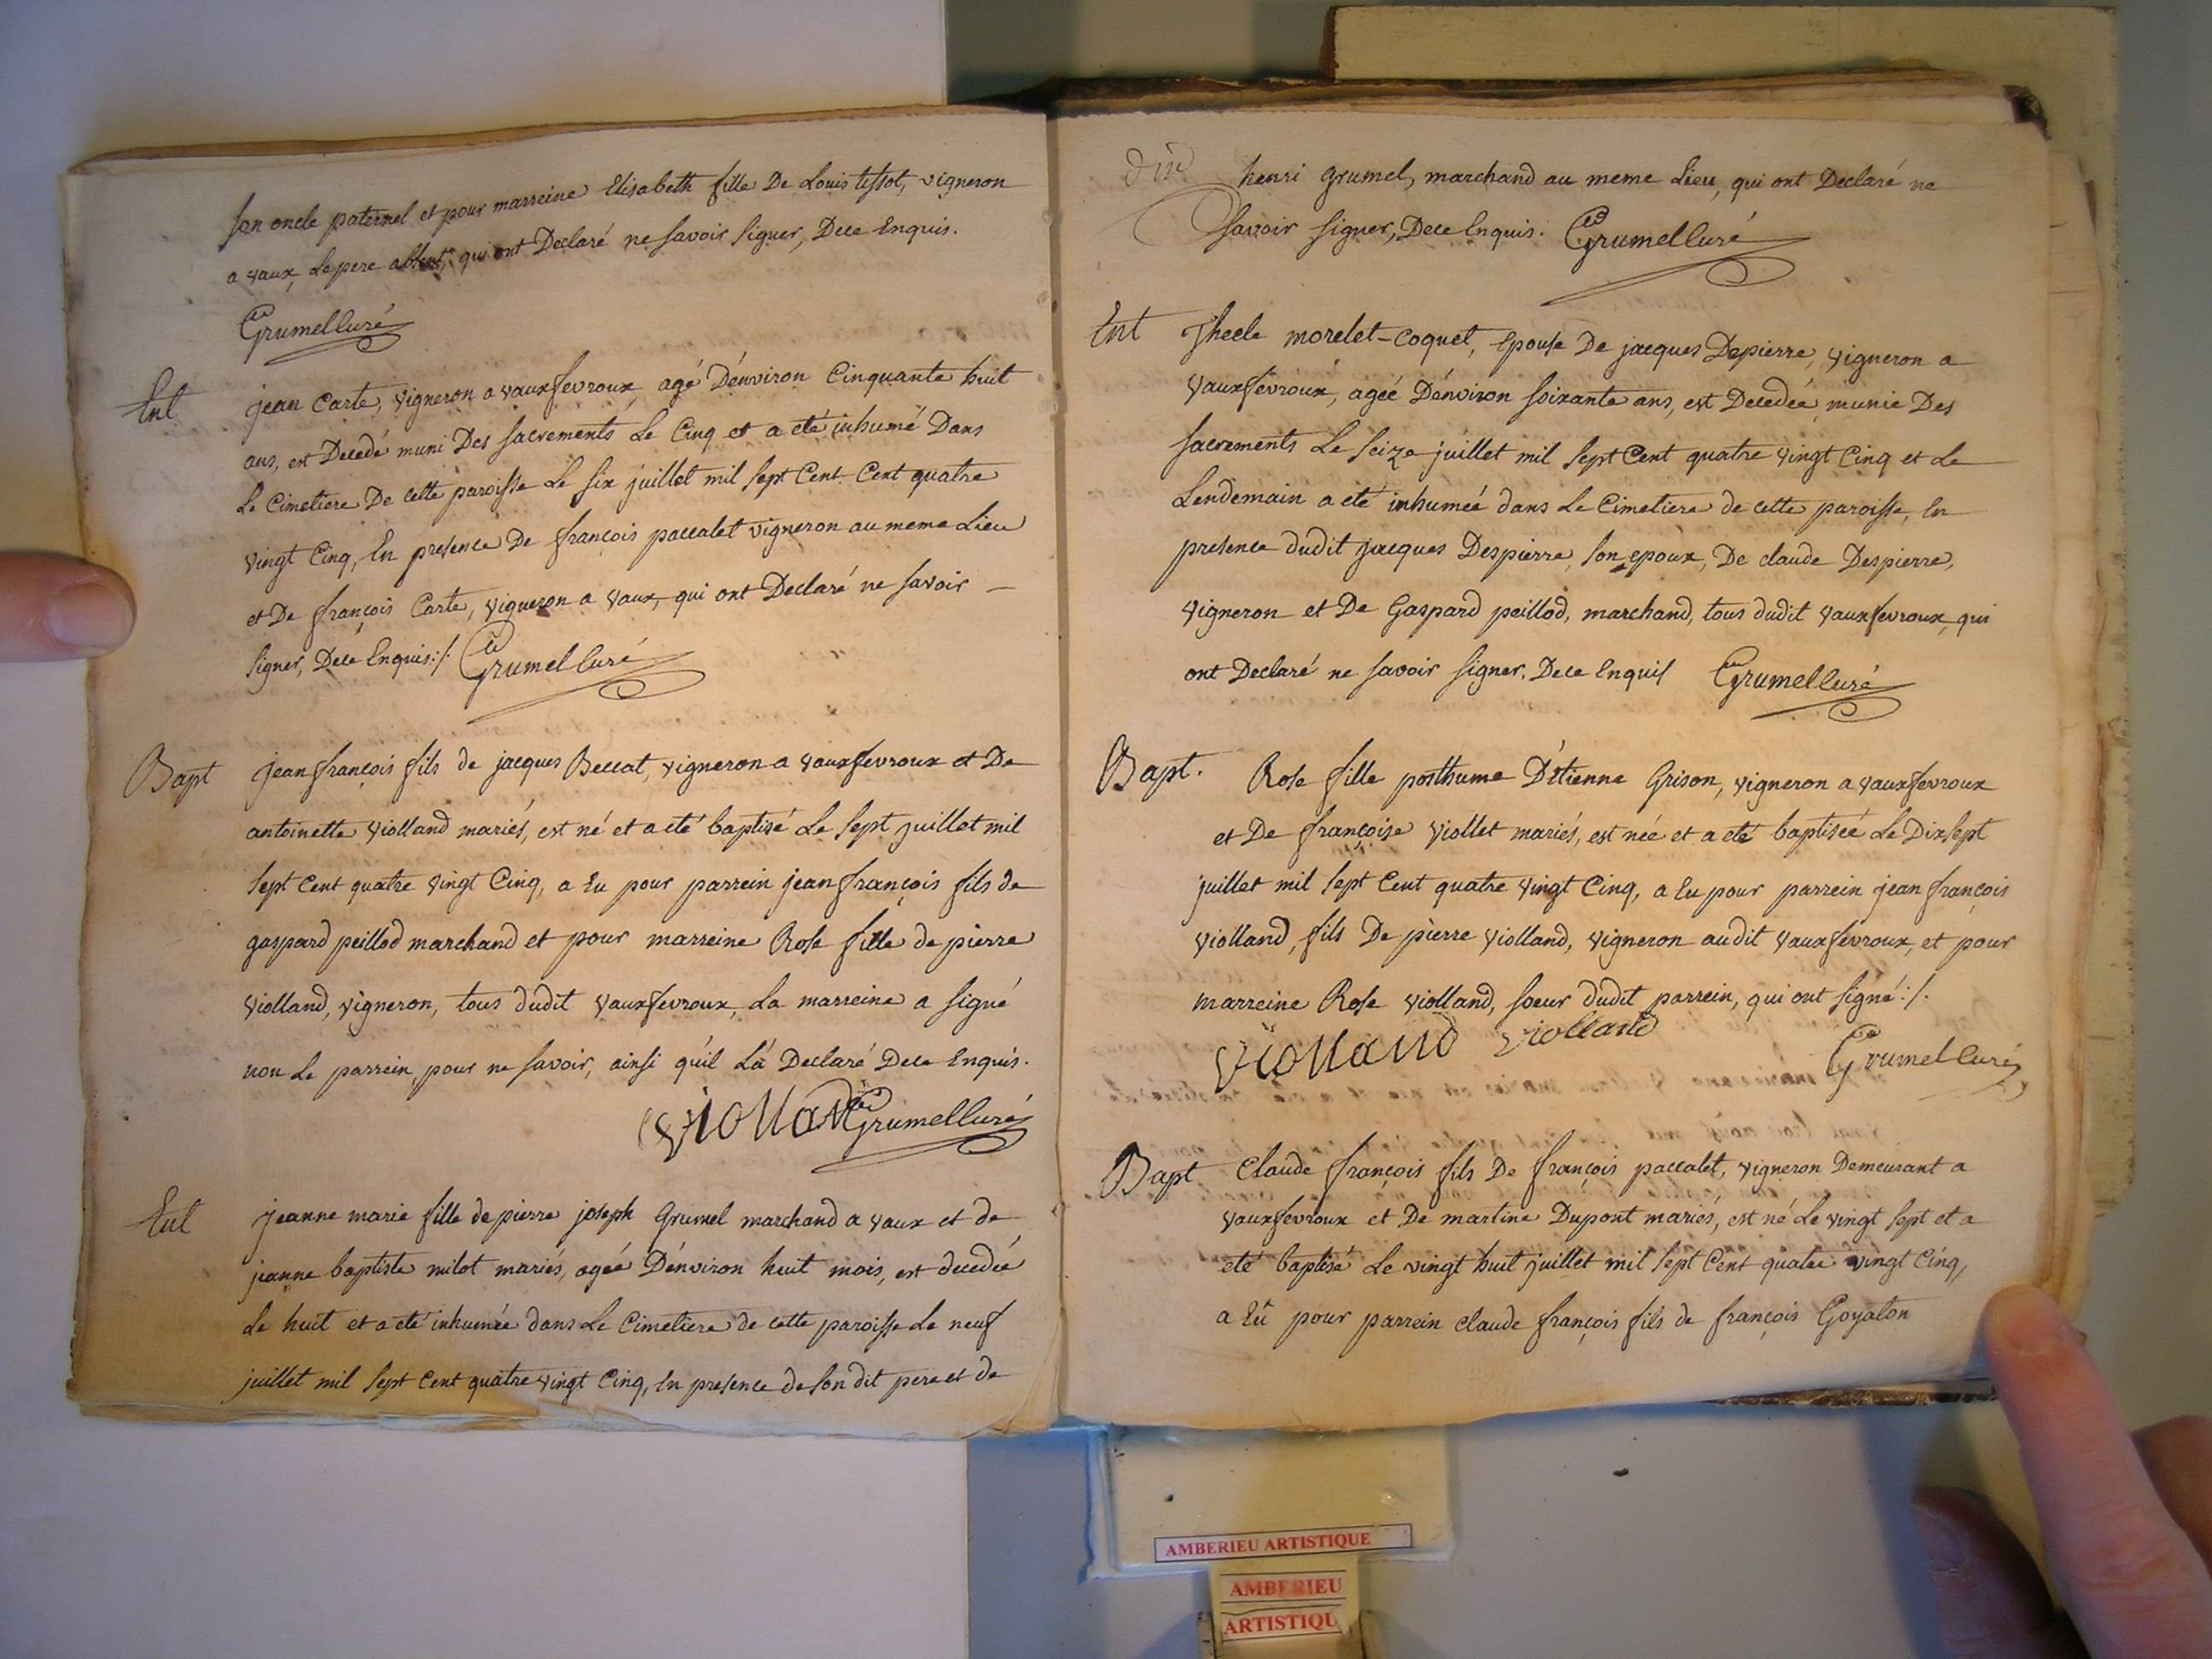 son oncle paternel et pour marreine Elisabeth fille De Louis tissot, vigneron
a vaux, Le pere absent, qui ont Declaré ne savoir signer, Dece Enquis.
Grumel Curé
Ent
jean Carte, vigneron a vauxfevroux, agé D'environ Cinquante huit
ans, est Decedé muni Des sacrements Le Cinq et a eté inhumé Dans
Le Cimetiere De cette paroisse Le six juillet mil sept Cent Cent quatre
vingt Cinq, En presence De françois paccalet vigneron au meme Lieu
et De françois Carte, vigneron a vaux, qui ont Declaré ne savoir —
signer, Dece Enquis ./. Grumel Curé
Bapt
jean françois fils de jacques Beccat, vigneron a vauxfevroux et De
antoinette violland mariés, est né et a eté baptisé Le sept juillet mil
sept Cent quatre vingt Cinq, a Eu pour parrein jean françois fils de
gaspard peillod marchand et pour marreine Rose fille de pierre
violland, vigneron, tous dudit vauxfevroux, La marreine a signé
non Le parrein, pour ne savoir, ainsi qu'il L'a Declaré Dece Enquis.
violland Grumel Curé
Ent
jeanne marie fille de pierre joseph Grumel marchand a vaux et de
jeanne baptiste milot mariés, ageé D'environ huit mois, est decedeé
Le huit et a eté inhumée dans Le Cimetiere de cette paroisse Le neuf
juillet mil sept Cent quatre vingt Cinq, En presence de son dit pere et de
henri grumel, marchand au meme Lieu, qui ont Declaré ne
savoir signer, Dece Enquis. Grumel Curé
Ent
Thecle morelet-coquet, Epouse De jacques Depierre, vigneron a
vauxfevroux, ageé D'environ soixante ans, est Decedeé munie Des
sacrements Le seize juillet mil sept Cent quatre vingt Cinq et Le
Lendemain a eté inhumeé dans Le Cimetiere de cette paroisse, En
presence dudit jacques Despierre, son epoux, De claude Despierre,
vigneron et De Gaspard peillod, marchand, tous dudit vauxfevroux, qui
ont Declaré ne savoir signer. Dece Enquis Grumel Curé
Bapt.
Rose fille posthume D'étienne Grison, vigneron a vauxfevroux
et De françoise viollet mariés, est neé et a eté baptiseé Le Dixsept
juillet mil sept Cent quatre vingt Cinq, a Eu pour parrein jean françois
violland, fils De pierre violland, vigneron audit vauxfevroux, et pour
marreine Rose violland, soeur dudit parrein, qui ont signé ./.
violland violland
Grumel Curé
Bapt
Claude françois fils De françois paccalet, vigneron Demeurant a
vauxfevroux et De martine Dupont mariés, est né Le vingt sept et a
eté baptisé Le vingt huit juillet mil sept Cent quatre vingt Cinq,
a Eû pour parrein claude françois fils de françois Goyaton
AMBERIEU ARTISTIQUE
AMBERIEU
ARTISTIQU